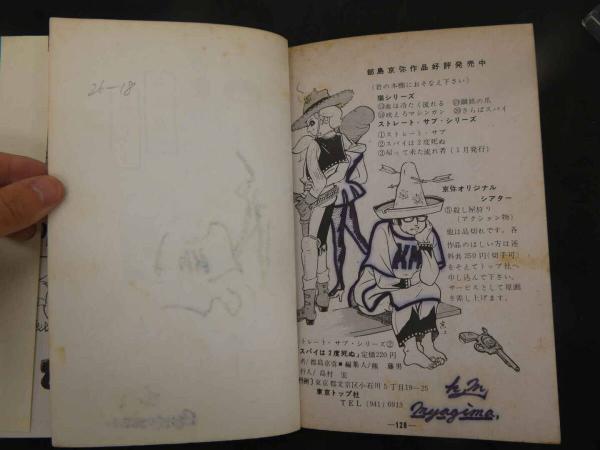 26-18
都島京弥作品好評発売中
(君の本棚におそなえ下さい)
傷シリーズ
血は冷たく流れる
鋼鉄の爪
吠えろマシンガン
さらばスパイ
ストレート・サブ・シリーズ
①ストレート・サブ
②スパイは2度死ぬ
③帰って来た流れ者(1月発行)
京弥オリジナル
シアター
⑤殺し屋狩り
(アクション物)
他は品切れです。各
作品のほしい方は送
料共250円(切手可)
をそえてトップ社へ
申し込んで下さい。
サービスとして原画
を差し上げます。
KM
トレート・サブ・シリーズ②
スパイは2度死ぬ』定価220円
者/都島京弥■編集人/熊 藤男
行人/島村 宏
東京都文京区小石川5丁目19-25
東京トップ社
TEL (941) 6913
K.M
myagima.
—128—